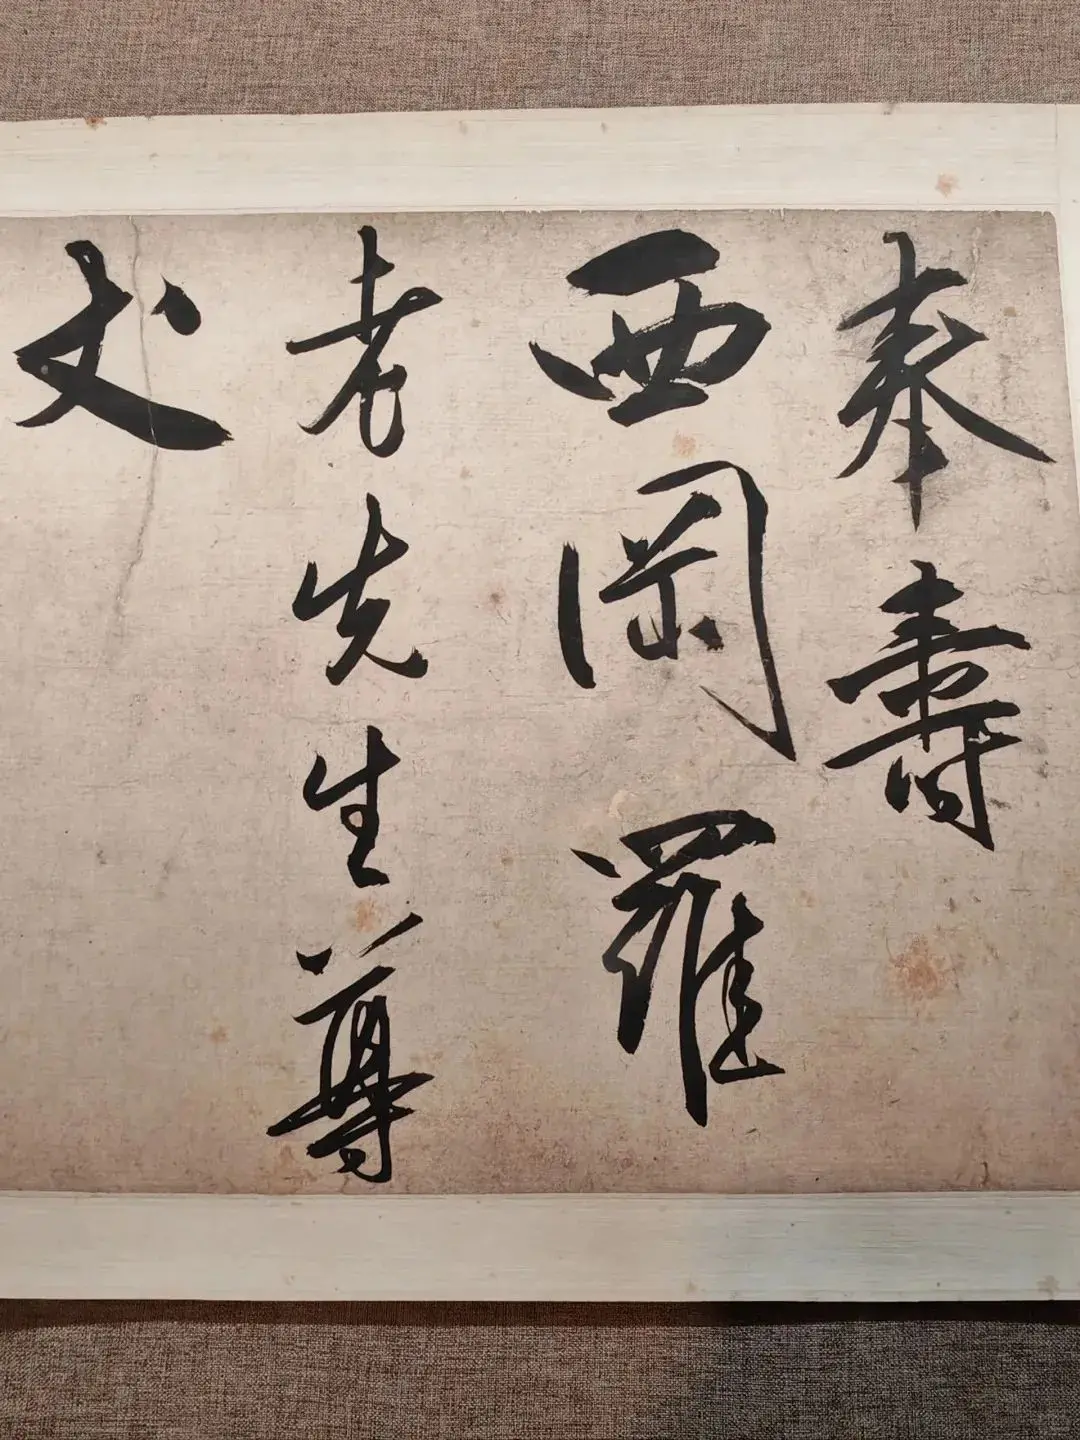 奉壽
西岡羅
老先生尊
丈